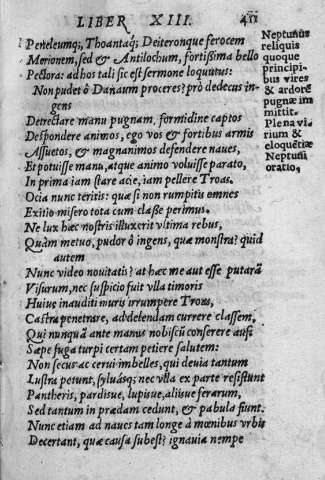 LIBER XIII. 411
Peneleumq; Thoantaq; Deiteronque ferocem
Merionem, sed & Antilochum, fortißima bello
Pectora: ad hos tali sic est sermone loquutus:
Non pudet ô Danaum proceres? prò dedecus in-
gens
Detrectare manu pugnam, formidine captos
Despondere animos, ego vos & fortibus armis
Assuetos, & magnanimos defendere naues,
Et potuisse manu, atque animo voluisse parato,
In prima iam stare acie, iam pellere Troas.
Ocia nunc teritis: quæ si non rumpitis omnes
Exitio misero tota cum classe perimus.
Ne lux hæc nostris illuxerit vltima rebus,
Quàm metuo, pudor ô ingens, quæ monstra? quid
autem
Nunc video nouitatis? at hæc me aut esse putarã
Visurum, nec suspicio fuit vlla timoris
Huius inauditi muris irrumpere Troas,
Castra penetrare, ad defendam currere classem,
Qui nunquã ante manus nobiscũ conserere ausi
Sæpe fuga turpi certam petiere salutem:
Non secus ac cerui imbelles, qui deuia tantum
Lustra petunt, syluasq; nec vlla ex parte resistunt
Pantheris, pardisue, lupisue, aliisue ferarum,
Sed tantum in prædam cedunt, & pabula fiunt.
Nunc etiam ad naues tam longè à mœnibus vrbis
Decertant, quæ causa subest? ignauia nempe
Neptunus
reliquis
quoque
principi-
bus vires
& ardorẽ
pugnæ im
mittit.
Plena vi-
rium &
eloquẽtiæ
Neptuni
oratio.